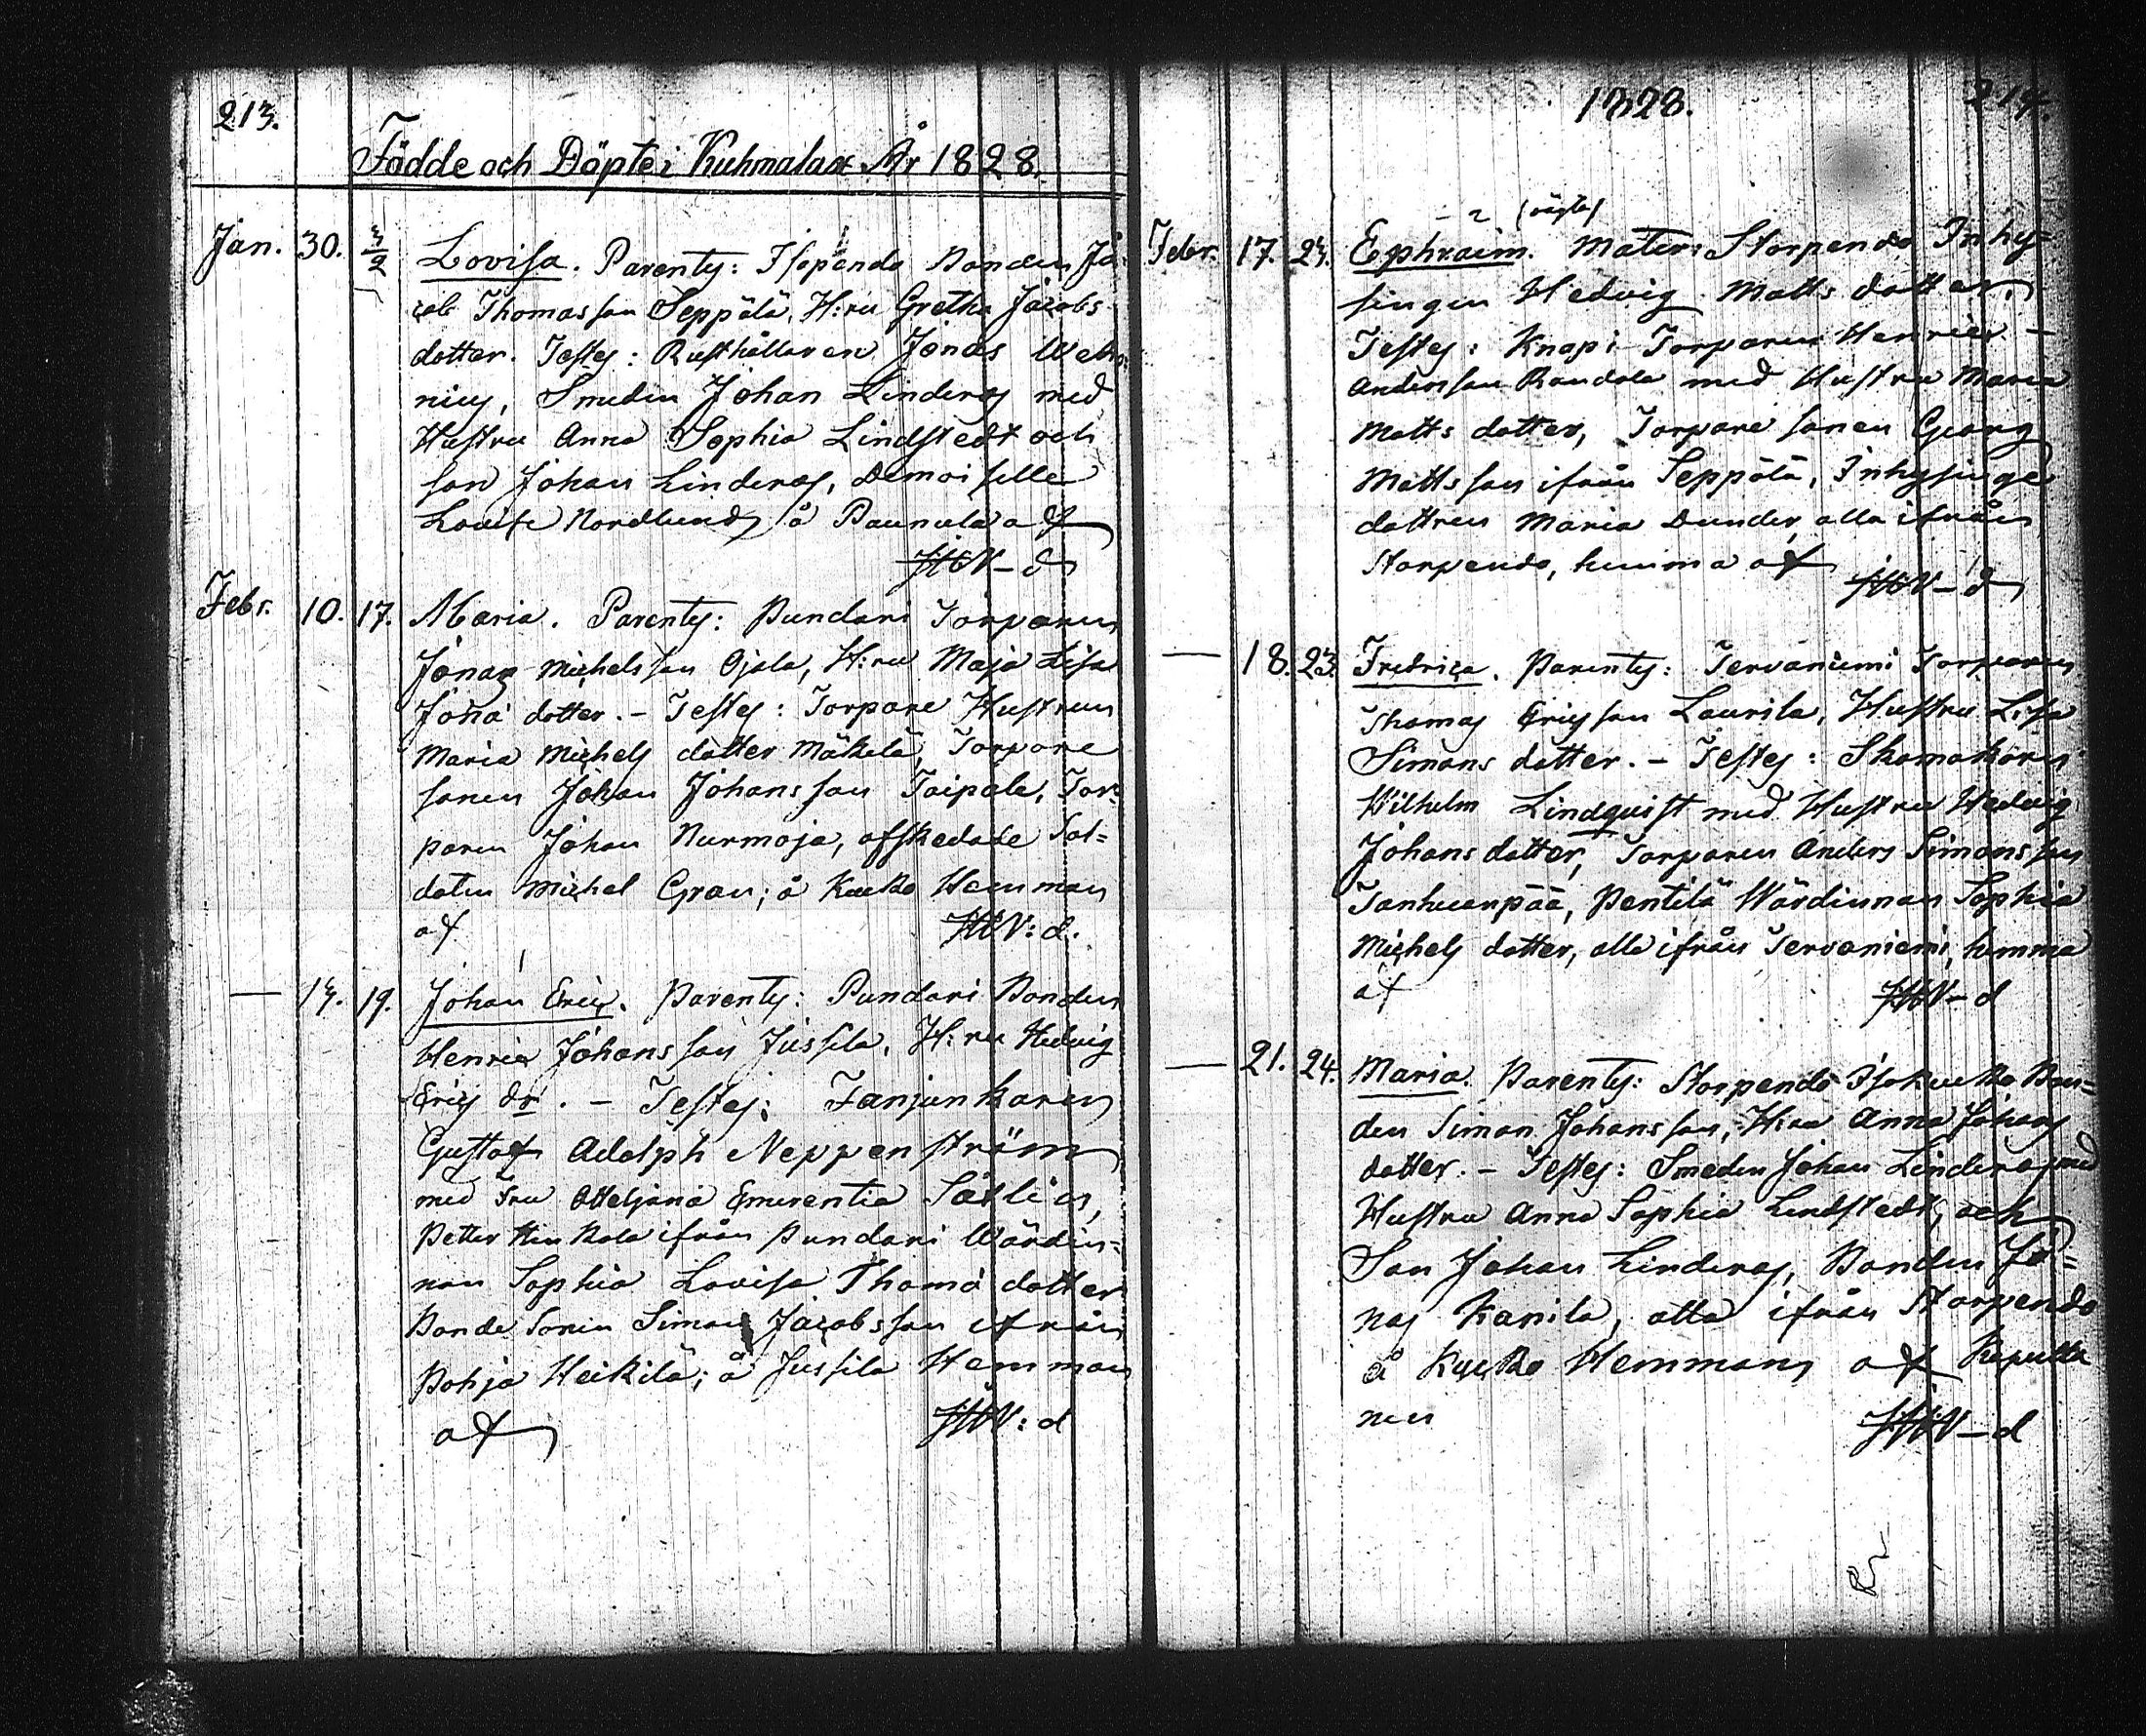 213.
Födde och Döpte i Kuhmalax År 1828.
Jan. 30. 3/2 Lovisa. Parentes: Isopendo Bonden Ja-
cob Thomasson Seppälä, H:ru Gretha Jacobs
dotter. Testes: Rusthållaren Jonas
Smeden Johan Linderos med
Hustru Anna Sophia Lindstedt och
son Johan Linderos, Demoiselle
Lovisa Nordlund, å Paunula af
JHW-d
Febr. 10. 17. Maria. Parentes: Pundari Torparen
Jonas Michelsson Ojala, H:ru Maja Lisa
Jona dotter. - Testes: Torpare Hustrun
Maria Michels dotter Mäkelä, Torpare
sonen Johan Johansson Taipale, Tor-
paren Johan Nurmoja, afskedade Sol=
daten Michel Gran; å Kucko Hemman
af JHW: d.
— 14. 19. Johan Eric. Parentes: Pundari Bonden
Henric Johansson Jussila, H:ru Hedvig
Erics dr. - Testes: Fanjunkaren
Gustaf Adolph Neppenström
med Fru Emerentia
Petter ifrån Pundari Wärdin=
nan Sophia Lovisa Thoma dotter
Bonde Sonen Simon Jacobsson ifrån
Pohja Heikilä; å Jussila Hemman
af JHW: d
1828. 214.
Febr. 17. 23. Ephraim. (oägta) Mater: Storpendo Inhy-
singen Hedvig Matts dotter.
Testes: Knapi Torparen Henric -
Andersson Randala med Hustru Maria
Matts dotter, Torpare sonen Georg
Mattsson ifrån Seppälä, Inhysinge
dottren Maria Dunder, alla ifrån
Storpendo, hemma af JHW-d
— 18. 23. Fredrica. Parentes: Tervaniemi Torparen
Thomas Ericsson Laurila, Hustru Lisa
Simons dotter. - Testes: Skomakaren
Wilhelm Lindqvist med Hustru Hedvig
Johans dotter, Torparen Anders Simonsson
Tanhuanpää, Pentilä Wärdinnan Sophia
Michels dotter, alla ifrån Tervaniemi, hemma
af JHW-d
— 21. 24. Maria. Parentes: Storpendo Isokucko Bon=
den Simon Johansson, H:ru Anna Johans
dotter. - Testes: Smeden Johan Linderos med
Hustru Anna Sophia Lindstedt, och
Son Johan Linderos, Bonden Jo=
nas Kanila, alla ifrån Storpendo
å Kucko Hemmans af
nen JHW-d